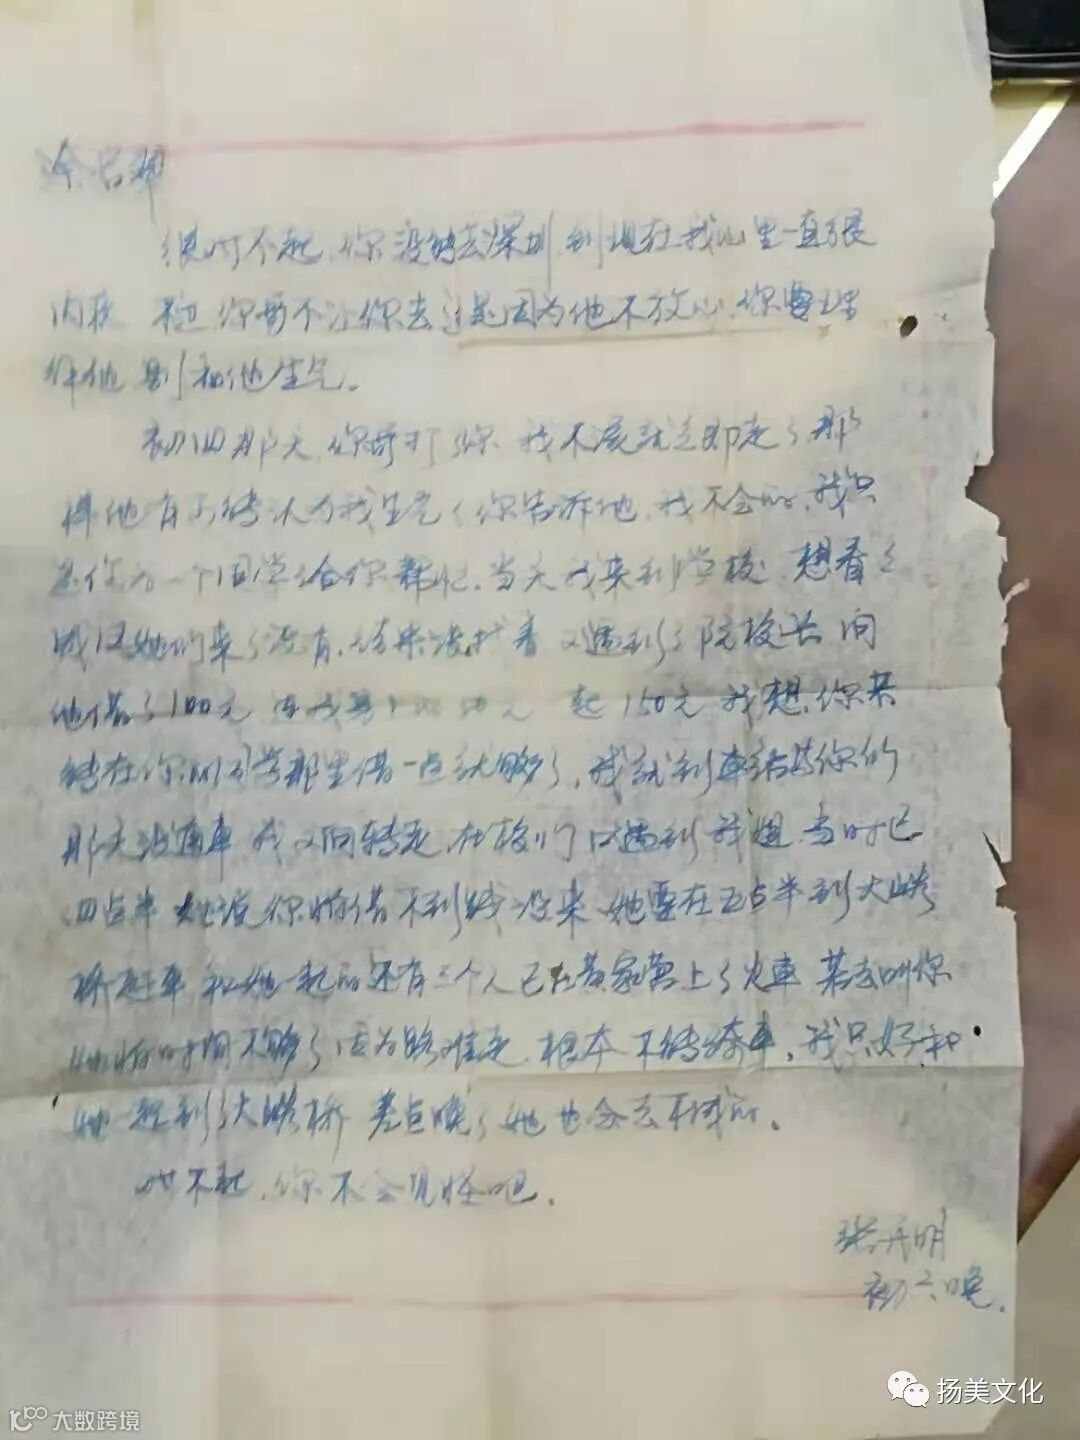 很对不起,你没能去深圳,到现在我心里一直很
内疚 你哥不让你去这是因为他不放心,你要理
解他 别和他生气。
初四那天,你哥打了你,我不该就立即走了,那
样他有可能认为我生气了,你告诉他,我不会的,我只
是作为一个同学给你帮忙,当天我来到学校,想看看
她们来了没有,结果没找着 又遇到了院校长 向
他借了100元 元 起150元 我想,你若
能在你的同学那里借一点就够了,我就到车站等你的
那天没通车,我又回转走,在校门口遇到我姐,当时已
四点半 她说你怕借不到钱没来,她要在五点半到大
桥赶车,和她一起的还有三个人已在黄家营上了火车 若去叫你
她怕时间不够了 因为路难走,根本不能骑车,我只好和
她一起到了大桥 差点晚了 她也会去不成的。
对不起,你不会见怪吧。
张开明
初六晚。
扬美文化
大数跨境